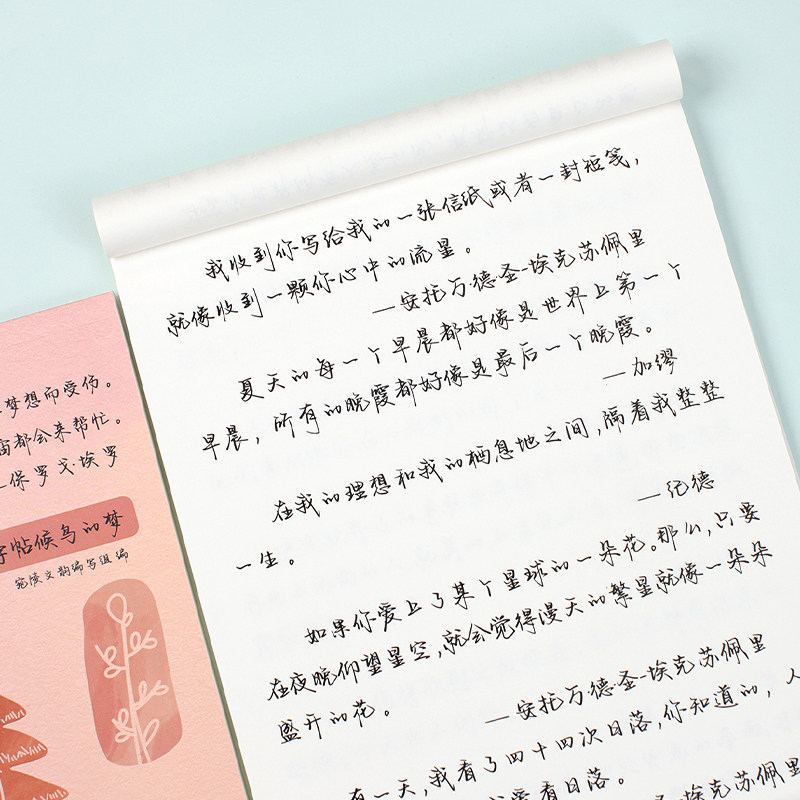 我收到你写给我的一张信纸或者一封短笺，
就像收到一颗你心中的流星。
—安托万·德·圣-埃克苏佩里
夏天的每一个早晨都好像是世界上第一个
早晨，所有的晚霞都好像是最后一个晚霞。
—加缪
在我的理想和我的栖息地之间，隔着我整整
一生。
—纪德
如果你爱上了某个星球的一朵花。那么，只要
在夜晚仰望星空，就会觉得漫天的繁星就像一朵朵
盛开的花。
—安托万·德·圣-埃克苏佩里
有一天，我看了四十四次日落，你知道的，人
爱看日落。
埃克苏佩里
梦想而受伤。
都会来帮忙。
保罗·戈·埃罗
字帖候鸟的梦
文韵编写组 编